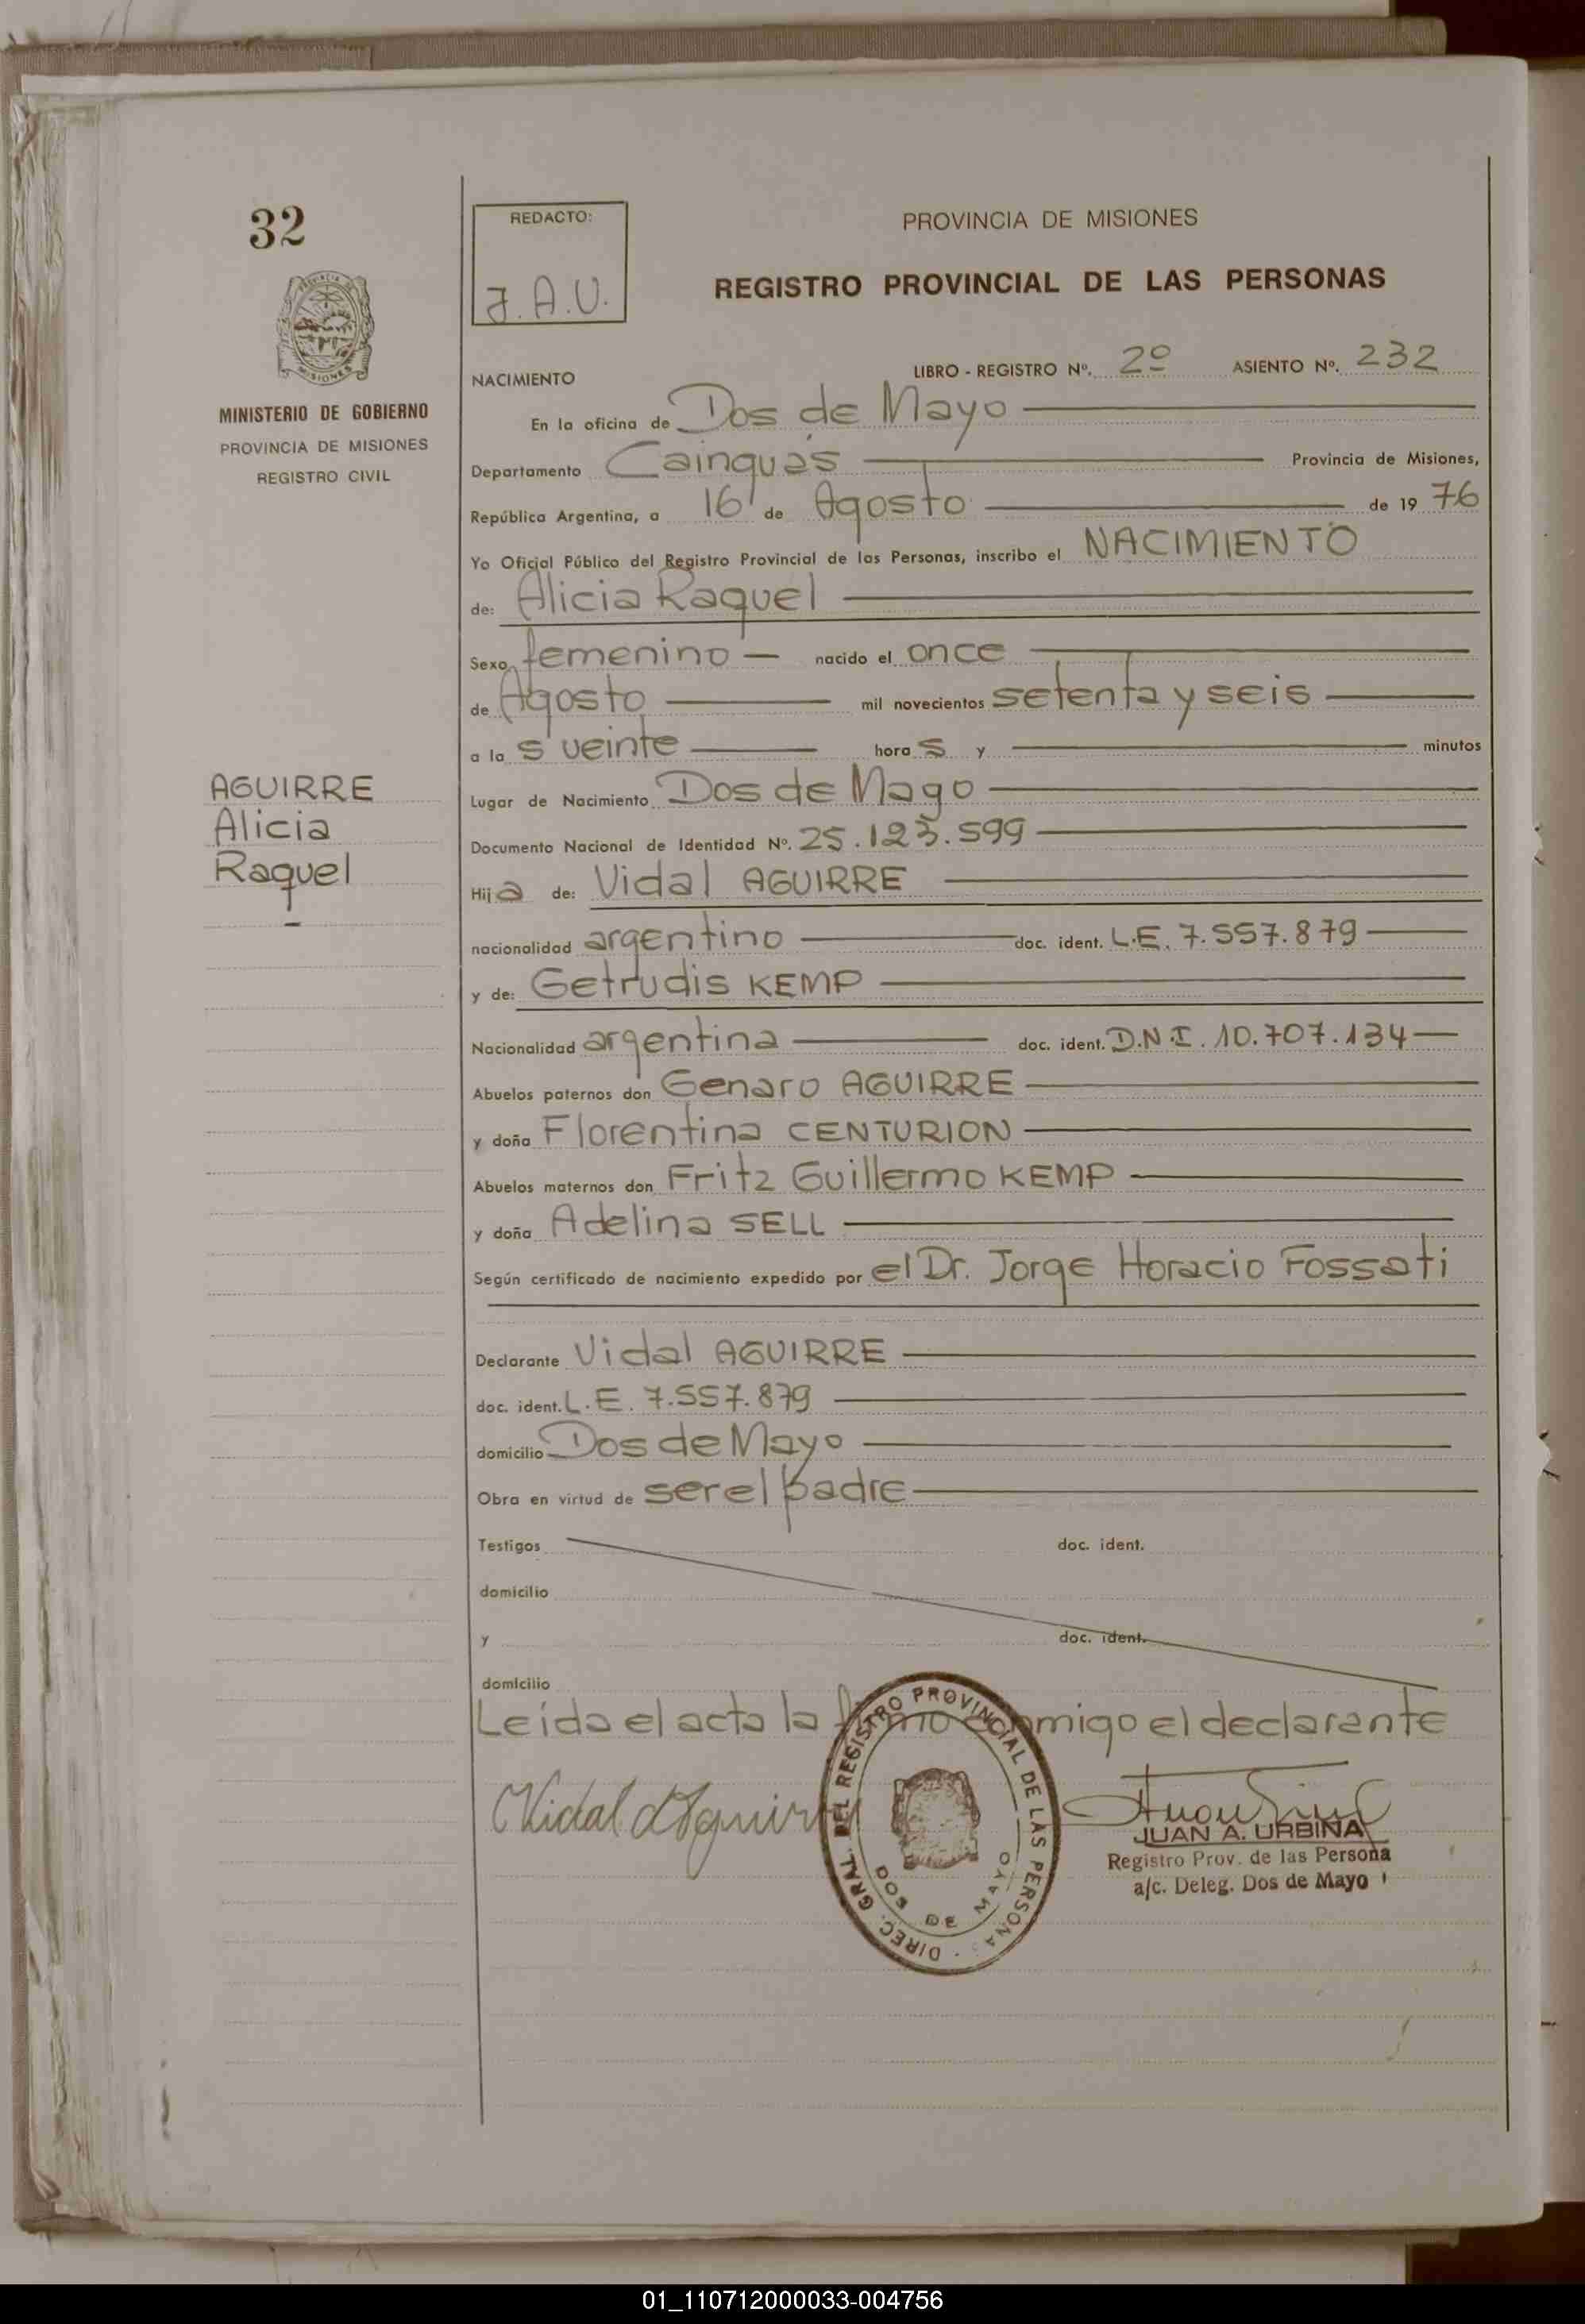 32
PROVINCIA DE
MISIONES
MINISTERIO DE GOBIERNO
PROVINCIA DE MISIONES
REGISTRO CIVIL
AGUIRRE
Alicia
Raquel
REDACTO:
J.A.U.
PROVINCIA DE MISIONES
REGISTRO PROVINCIAL DE LAS PERSONAS
LIBRO - REGISTRO Nº. 2º ASIENTO Nº. 232
NACIMIENTO
En la oficina de Dos de Mayo
Departamento Cainguás Provincia de Misiones,
República Argentina, a 16 de Agosto de 1976
Yo Oficial Público del Registro Provincial de las Personas, inscribo el NACIMIENTO
de: Alicia Raquel
Sexo femenino — nacido el once
de Agosto mil novecientos setenta y seis
a la s veinte hora s y minutos
Lugar de Nacimiento Dos de Mayo
Documento Nacional de Identidad Nº. 25.123.599
Hij a de: Vidal AGUIRRE
nacionalidad argentino doc. ident. L.E. 7.557.879
y de: Getrudis KEMP
Nacionalidad argentina doc. ident. D.N.I. 10.707.134
Abuelos paternos don Genaro AGUIRRE
y doña Florentina CENTURION
Abuelos maternos don Fritz Guillermo KEMP
y doña Adelina SELL
Según certificado de nacimiento expedido por el Dr. Jorge Horacio Fossati
Declarante Vidal AGUIRRE
doc. ident. L.E. 7.557.879
domicilio Dos de Mayo
Obra en virtud de ser el padre
Testigos doc. ident.
domicilio
y doc. ident.
domicilio
Leída el acta la firmo conmigo el declarante
Vidal Aguirre
DIREC. GRAL. DEL REGISTRO PROVINCIAL DE LAS PERSONAS
DOS DE MAYO
JUAN A. URBINA
Registro Prov. de las Persona
a/c. Deleg. Dos de Mayo
01_110712000033-004756